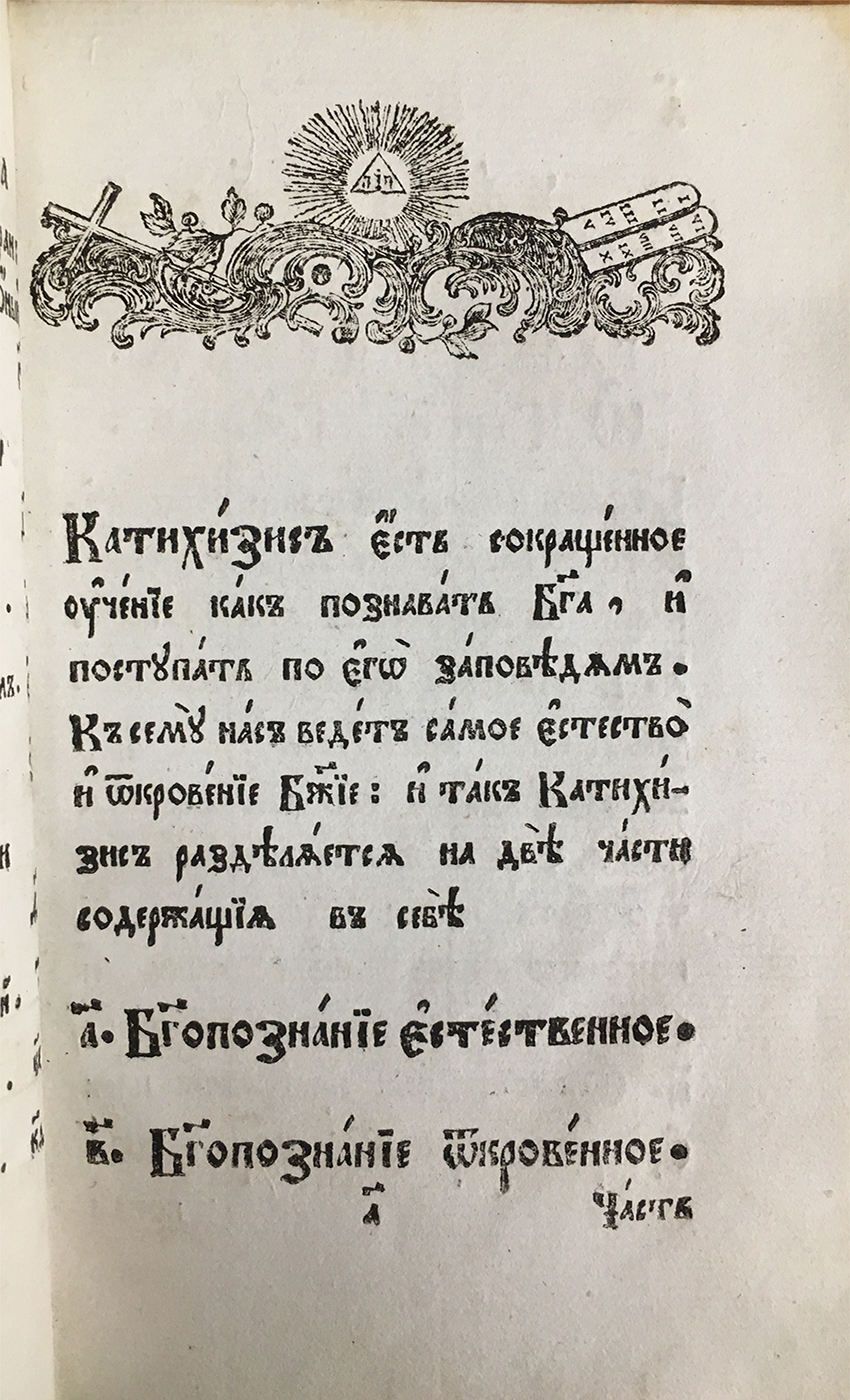 Катихи́зисъ є҆́сть сокраще́нное
оу҆че́нїе ка́къ познава́ть Бг҃а , и҆
постꙋпа́ть по є҆гѡ̀ за́повѣдѧмъ.
Къ семꙋ̀ на́съ веде́тъ са́мое є҆стество̀
и҆ ѿкрове́нїе Бж҃їе : и҆ та́къ Катихи́-
зисъ раздѣлѧ́етсѧ на двѣ̀ ча́сти
содержа́щїѧ въ себѣ̀
а҃. Бг҃опозна́нїе є҆сте́ственное.
в҃. Бг҃опозна́нїе ѿкрове́нное.
а҃ Ча́сть